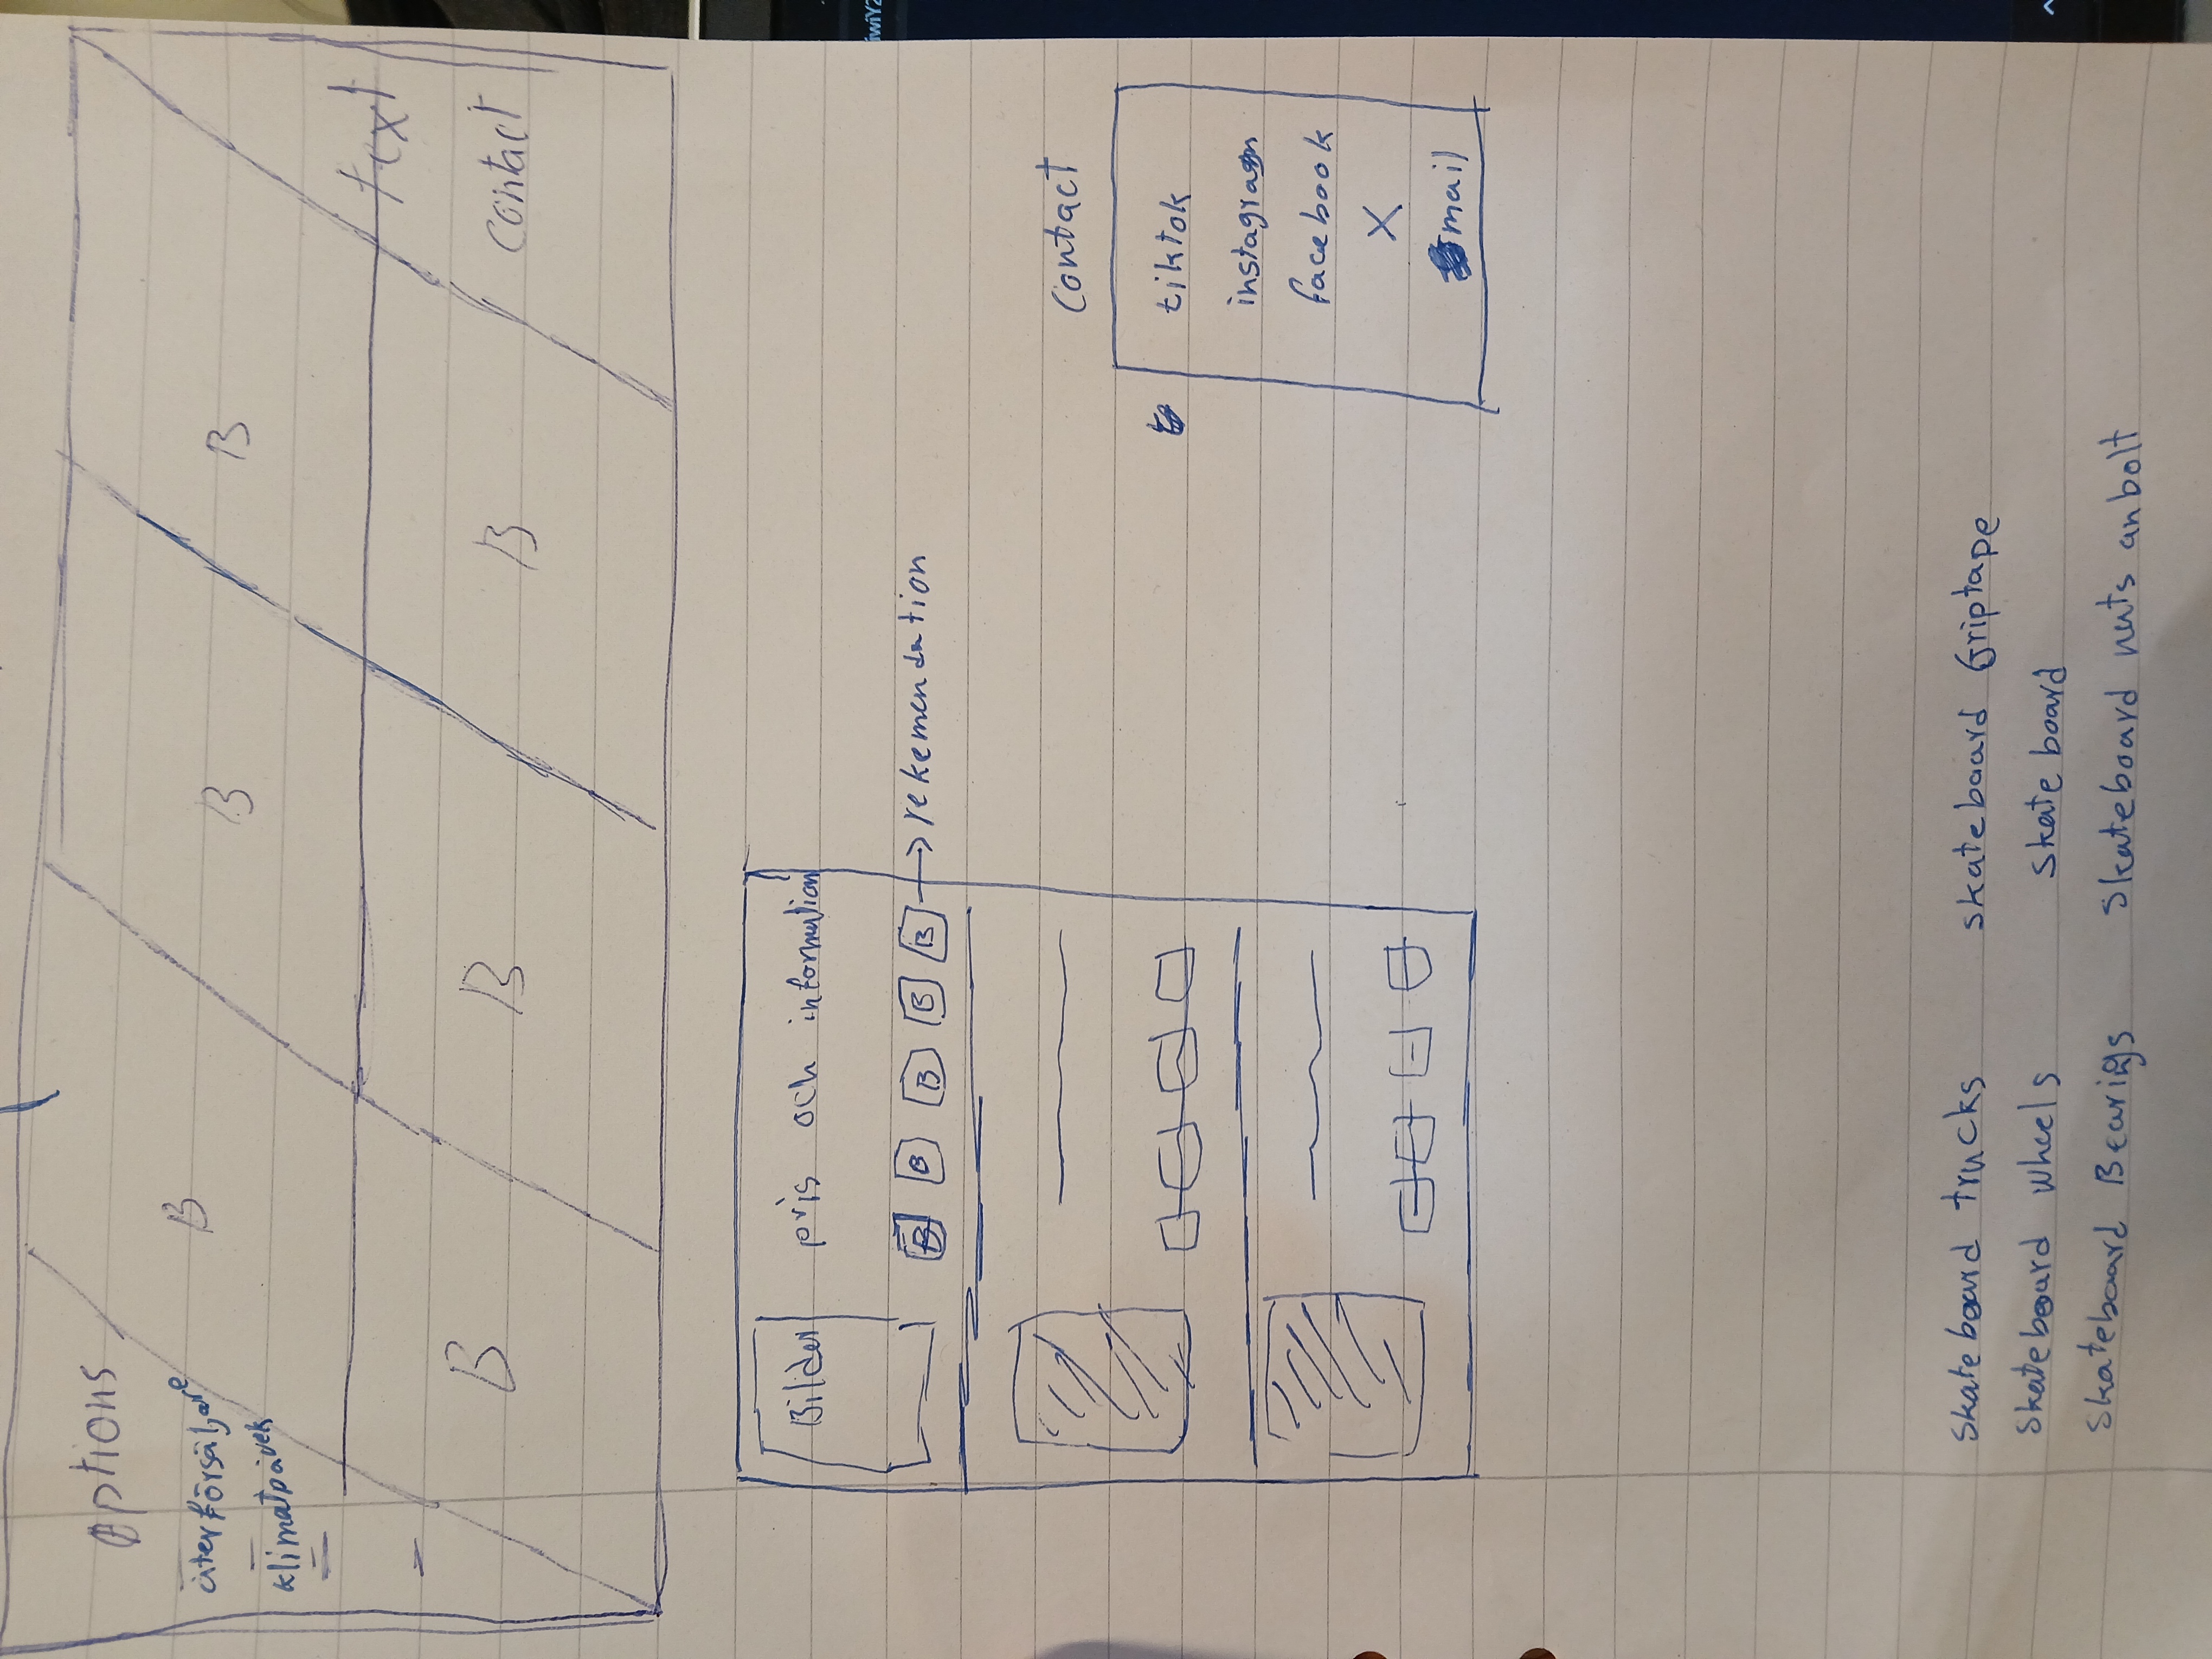 options
återförsäljare
klimatpåvek
B B B
text
B B B
contact
Bilder pris och information
B B B B B → rekemendation
contact
tiktok
instagram
facebook
X
mail
skateboard trucks skateboard Griptape
skateboard wheels skate board
skateboard Bearings skateboard nuts an bolt